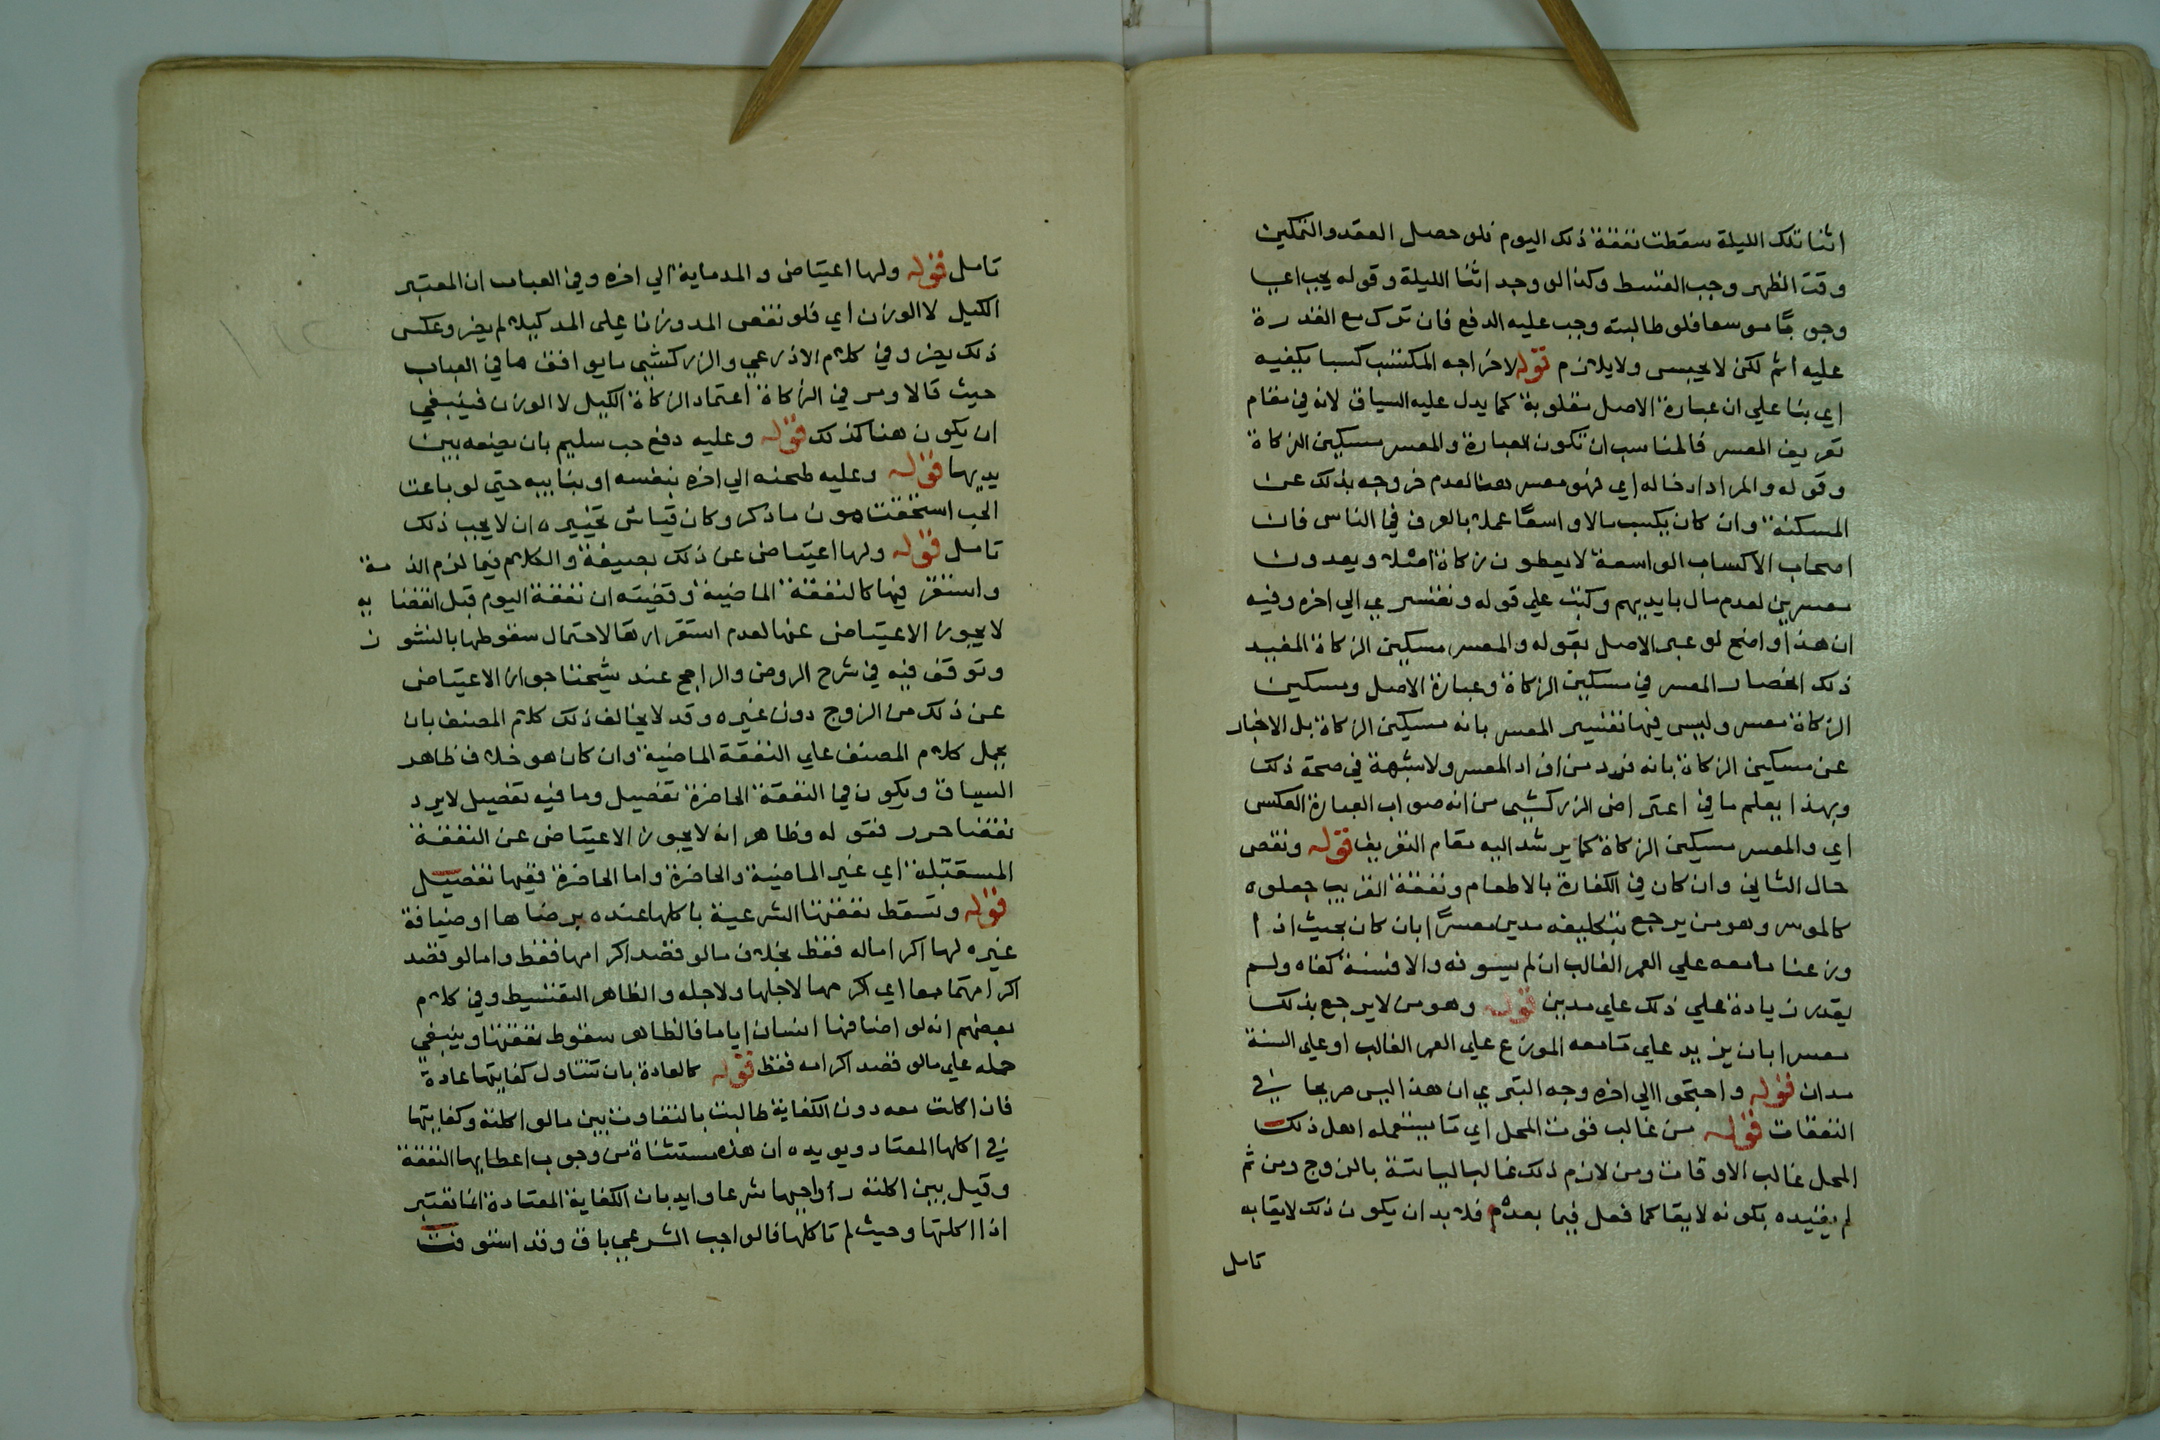 اثنا تلك الليلة سقطت نفقة ذلك اليوم فلو حصل العقد والتمكين
وقت الظهر وجب القسط وكذا لو وجد اثنا الليلة وقوله يجب اي
وجوبًا موسعا فلو طالبته وجب عليه الدفع فان ترك مع القدرة
عليه اثم لكن لا يحبس ولا يلازم قوله لاخراجه المكتسب كسبا يكفيه
اي بنا علي ان عبارة الاصل مقلوبة كما يدل عليه السياق لانه في مقام
تعريف المعسر فالمناسب ان تكون العبارة والمعسر مسكين الزكاة
وقوله والمراد ادخاله اي فهو معسر هنا لعدم خروجه بذلك عن
المسكنة وان كان يكسب مالا واسعًا عملا بالعرف في الناس فان
اصحاب الاكساب الواسعة لا يعطون زكاة اصلا ويعدون
معسرين لعدم مال بايديهم وكتب علي قوله وتفسيري الي اخره وفيه
ان هذا واضح لو عبر الاصل بقوله والمعسر مسكين الزكاة المفيد
ذلك انحصار المعسر في مسكين الزكاة وعبارة الاصل ومسكين
الزكاة معسر وليس فيها تفسير المعسر بانه مسكين الزكاة بل الاخبار
عن مسكين الزكاة بانه فرد من افراد المعسر ولا شبهة في صحة ذلك
وبهذا يعلم ما في اعتراض الزركشي من انه صواب العبارة العكس
اي والمعسر مسكين الزكاة كما يرشد اليه مقام التعريف قوله ونقص
حال الثاني وان كان في الكفارة بالاطعام ونفقة القريب جعلوه
كالموسر وهو من يرجع بتكليفه مدين معسرًا بان كان بحيث اذا
وزعنا ما معه علي العمر الغالب ان لم يستوفه والا فسنة كفاه ولم
يقدر زيادة علي ذلك علي مدين قوله وهو من لا يرجع بذلك
معسرا بان يزيد علي ما معه الموزع علي العمر الغالب او علي السنة
مدان قوله واحتجوا الي اخره وجه التبري ان هذا ليس صريحا في
النفقات قوله من غالب قوت المحل اي ما يستعمله اهل ذلك
المحل غالب الاوقات ومن لازم ذلك غالبا لياقته بالزوج ومن ثم
لم يقيده بكونه لايقا كما فعل فيما بعده فلا بد ان يكون ذلك لايقا به
تامل
تامل قوله ولها اعتياض والمدماية الي اخره وفي العباب ان المعتبر
الكيل لا الوزن اي فلو نقص المد وزنا علي المد كيلا لم يضر وعكس
ذلك يضر وفي كلام الاذرعي والزركشي ما يوافق ما في العباب
حيث قالا ومر في الزكاة اعتماد الزكاة الكيل لا الوزن فينبغي
ان يكون هنا كذلك قوله وعليه دفع حب سليم بان يضعه بين
يديها قوله وعليه طحنه الي اخره بنفسه او بنايبه حتي لو باعت
الحب استحقت مون ما ذكر وكان قياس تخييره ان لا يجب ذلك
تامل قوله ولها اعتياض عن ذلك بصيغة والكلام فيما لزم الذمة
واستقر فيها كالنفقة الماضية وقضيته ان نفقة اليوم قبل انقضايه
لا يجوز الاعتياض عنها لعدم استقرارها لاحتمال سقوطها بالنشوز
وتوقف فيه في شرح الروض والراجح عند شيخنا جواز الاعتياض
عن ذلك من الزوج دون غيره وقد لا يخالف ذلك كلام المصنف بان
يحمل كلام المصنف علي النفقة الماضية وان كان هو خلاف ظاهر
السياق ويكون في النفقة الحاضرة تفصيل وما فيه تفصيل لا يرد
نقضا حرر فقوله وظاهر انه لا يجوز الاعتياض عن النفقة
المستقبلة اي غير الماضية والحاضرة واما الحاضرة ففيها تفصيل
قوله وتسقط نفقتها الشرعية باكلها عنده برضاها او ضيافة
غيره لها اكراما له فقط بخلاف ما لو قصد اكرامها فقط واما لو قصد
اكرامهما معا اي اكرمها لاجلها ولاجله والظاهر التقسيط وفي كلام
بعضهم انه لو اضافها انسان اياما فالظاهر سقوط نفقتها وينبغي
حمله علي ما لو قصد اكرامه فقط قوله كالعادة بان تتناول كفايتها عادة
فان اكلت معه دون الكفاية طالبت بالتفاوت بين ما لو اكلته وكفايتها
في اكلها المعتاد ويويده ان هذه مستثناة من وجوب اعطايها النفقة
وقيل بين اكلته وواجبها شرعا وايد بان الكفاية المعتادة انما تعتبر
اذا اكلتها وحيث لم تاكلها فالواجب الشرعي باق وقد استوفت